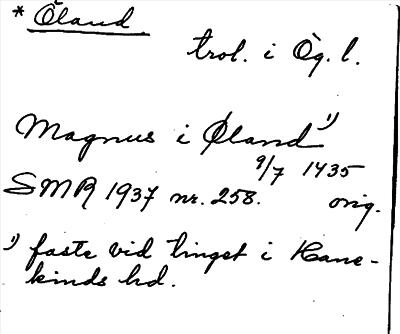 * Öland
trol. i Ög. l.
Magnus i Øland ¹)
9/7 1435
SMR 1937 nr. 258. orig.
¹) faste vid tinget i Hane-
kinds hd.